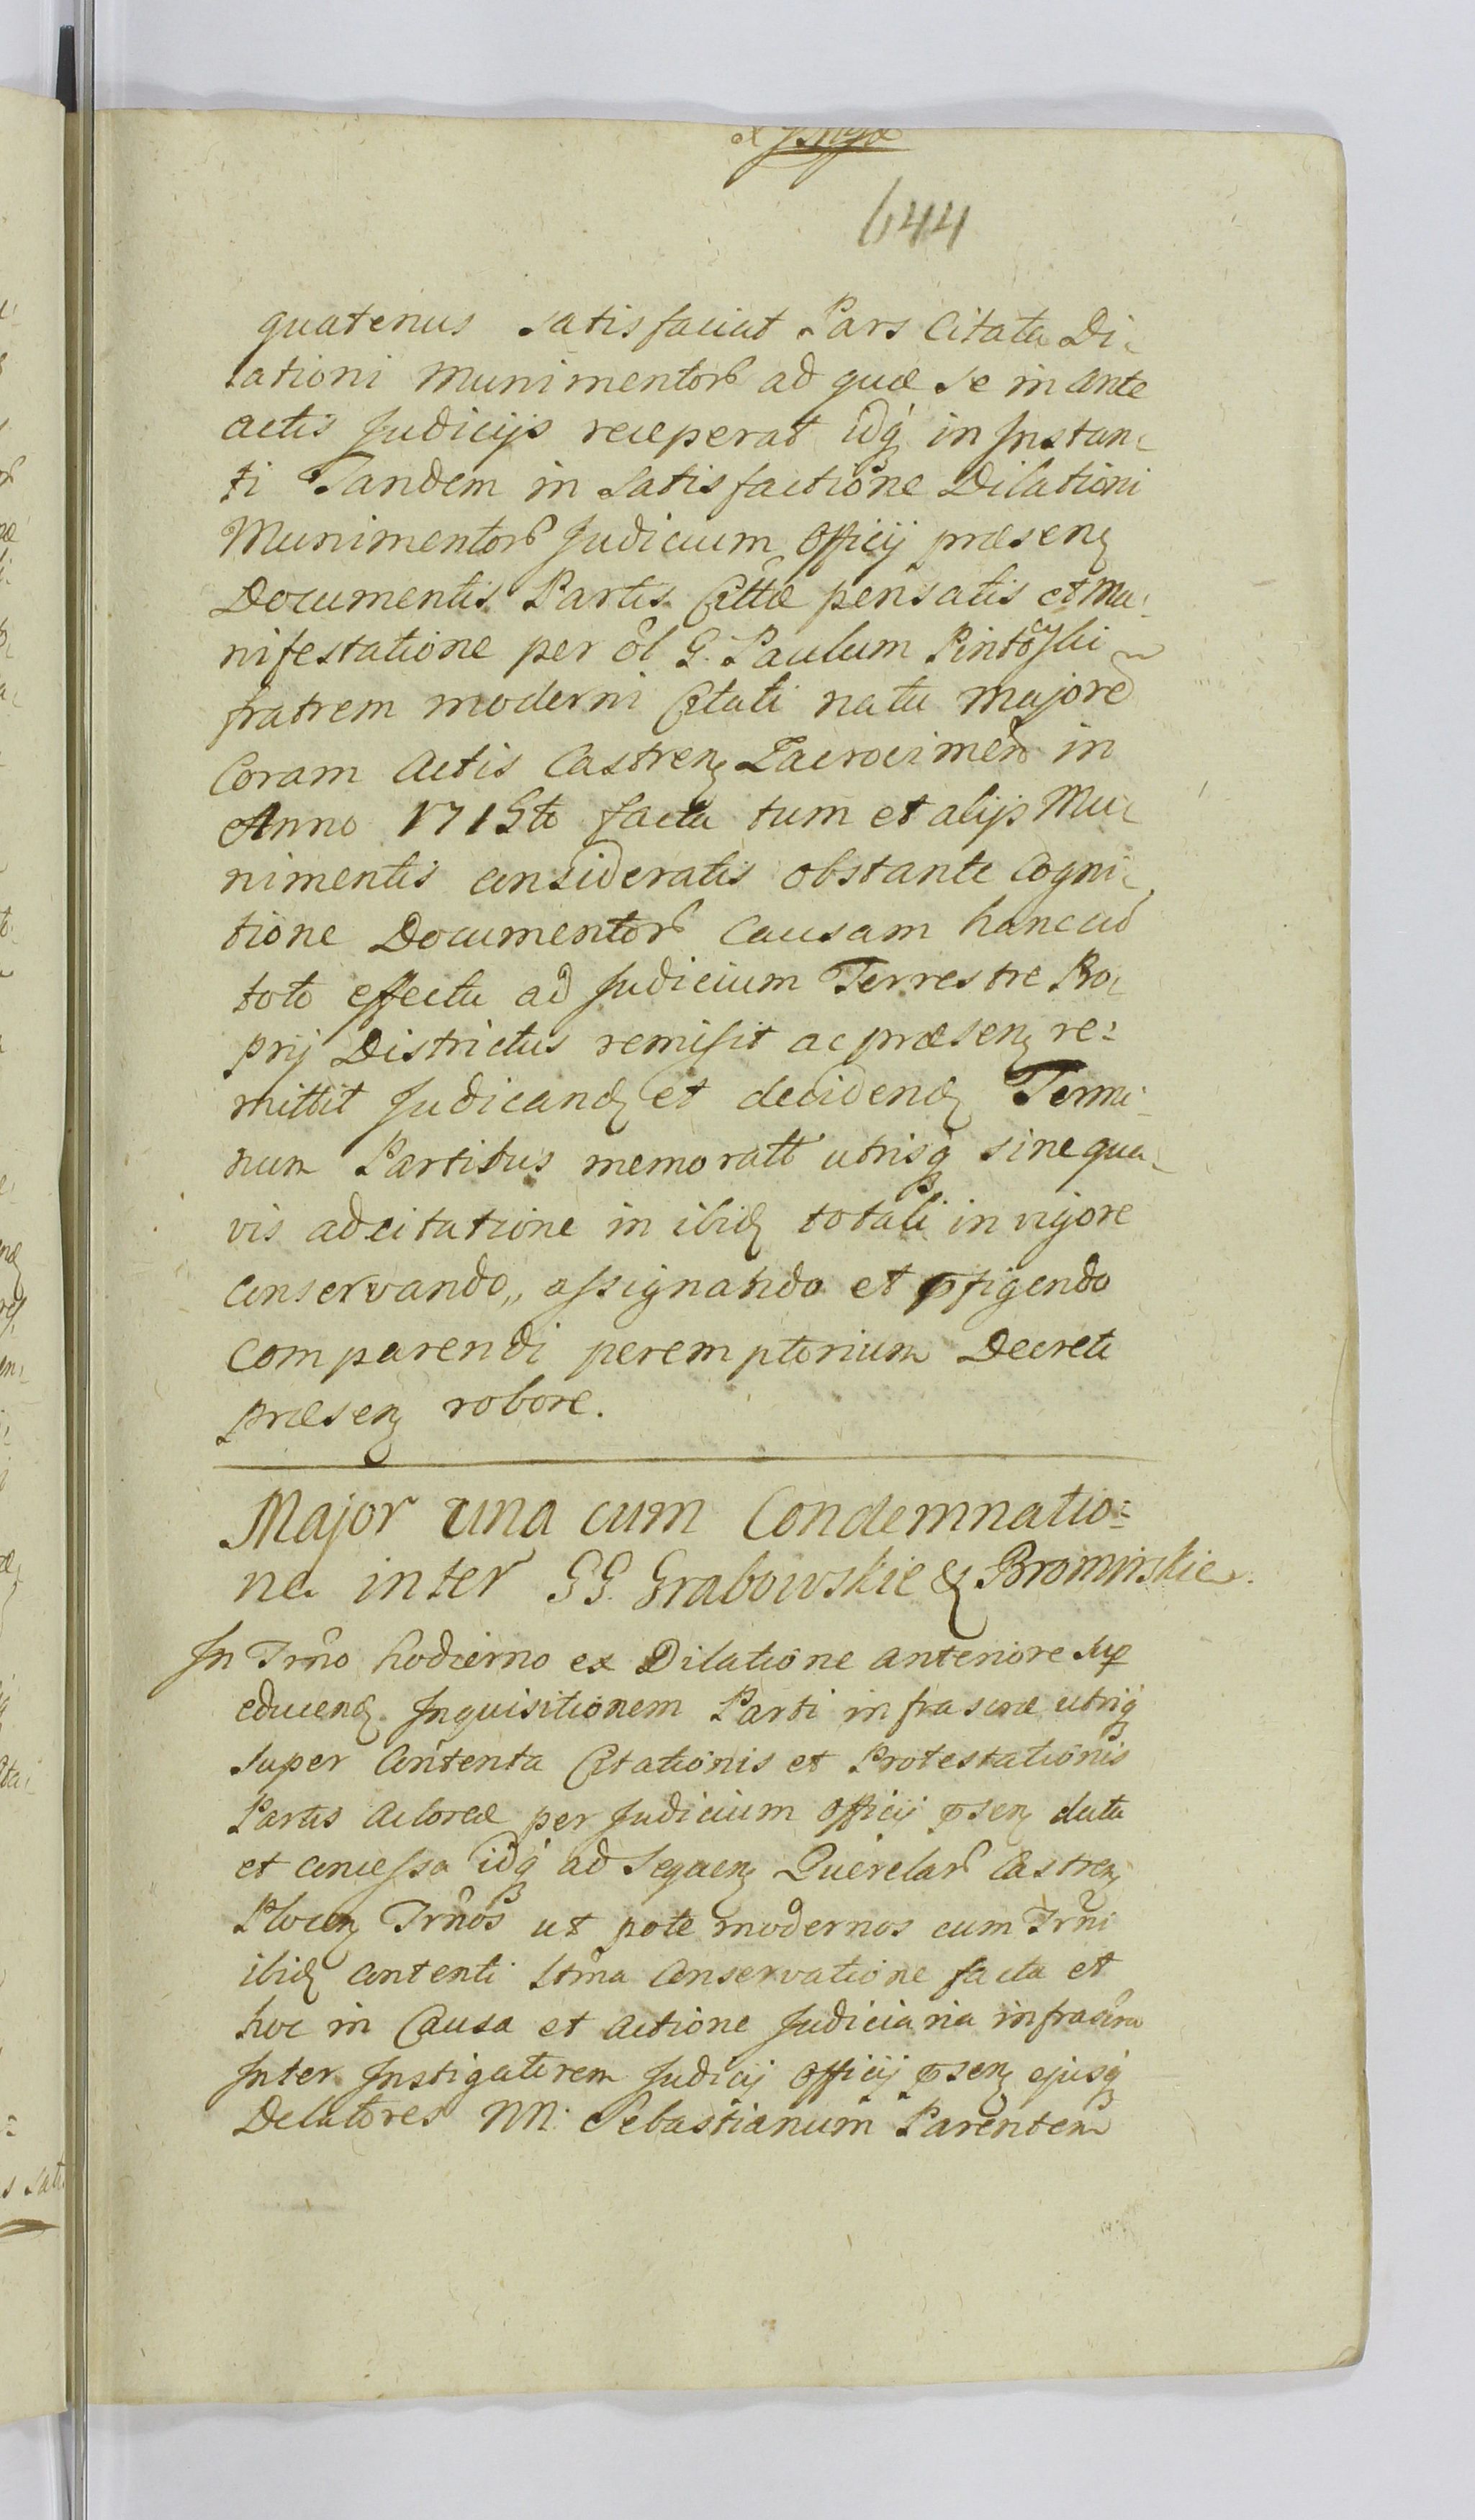 644
quatenus satisfaciat Pars Citata Di-
lationi Munimentor ad quæ se in ante
actis Judicijs receperat idq in Instan-
ti Tandem in satisfactione Dilationi
Munimentor Judicium Officij præsen
Documentis Partis Cittæ pensatis et Ma-
nifestatione per ol G. Paulum
fratrem moderni Citati natu majore
Coram Actis Castren Zacrocimen in
Anno 1715to facta tum et alijs Mu-
nimentis consideratis obstante Cogni-
tione Documentor Causam hanc cu
toto effectu ad Judicium Terrestre Pro-
prij Districtus remisit ac præsen re-
mittit Judicand et decidend Termi-
num Partibus memoratt utrisq sine qua-
vis adcitatione in ibid totali in vigore
conservando, assignando et pfigendo
comparendi peremptorium Decreti
præsen robore.
Major una cum Condemnatio-
ne inter GG. Grabowskie & Bromirskie.
In Trno hodierno ex Dilatione anteriore sup
educend Inquisitionem Parti infrascræ utriq
super Contenta Citationis et Protestationis
Partis Actoreæ per Judicium Officij psen data
et concessa idq ad Sequen Querelar Castren
Plocen Trnos ut pote modernos cum Trni
ibid contenti conservatione facta et
hoc in Causa et actione Judiciaria infrascra
Inter Instigatorem Judicij Officij psen ejusq
Delatores NN. Sebastianum Parentem